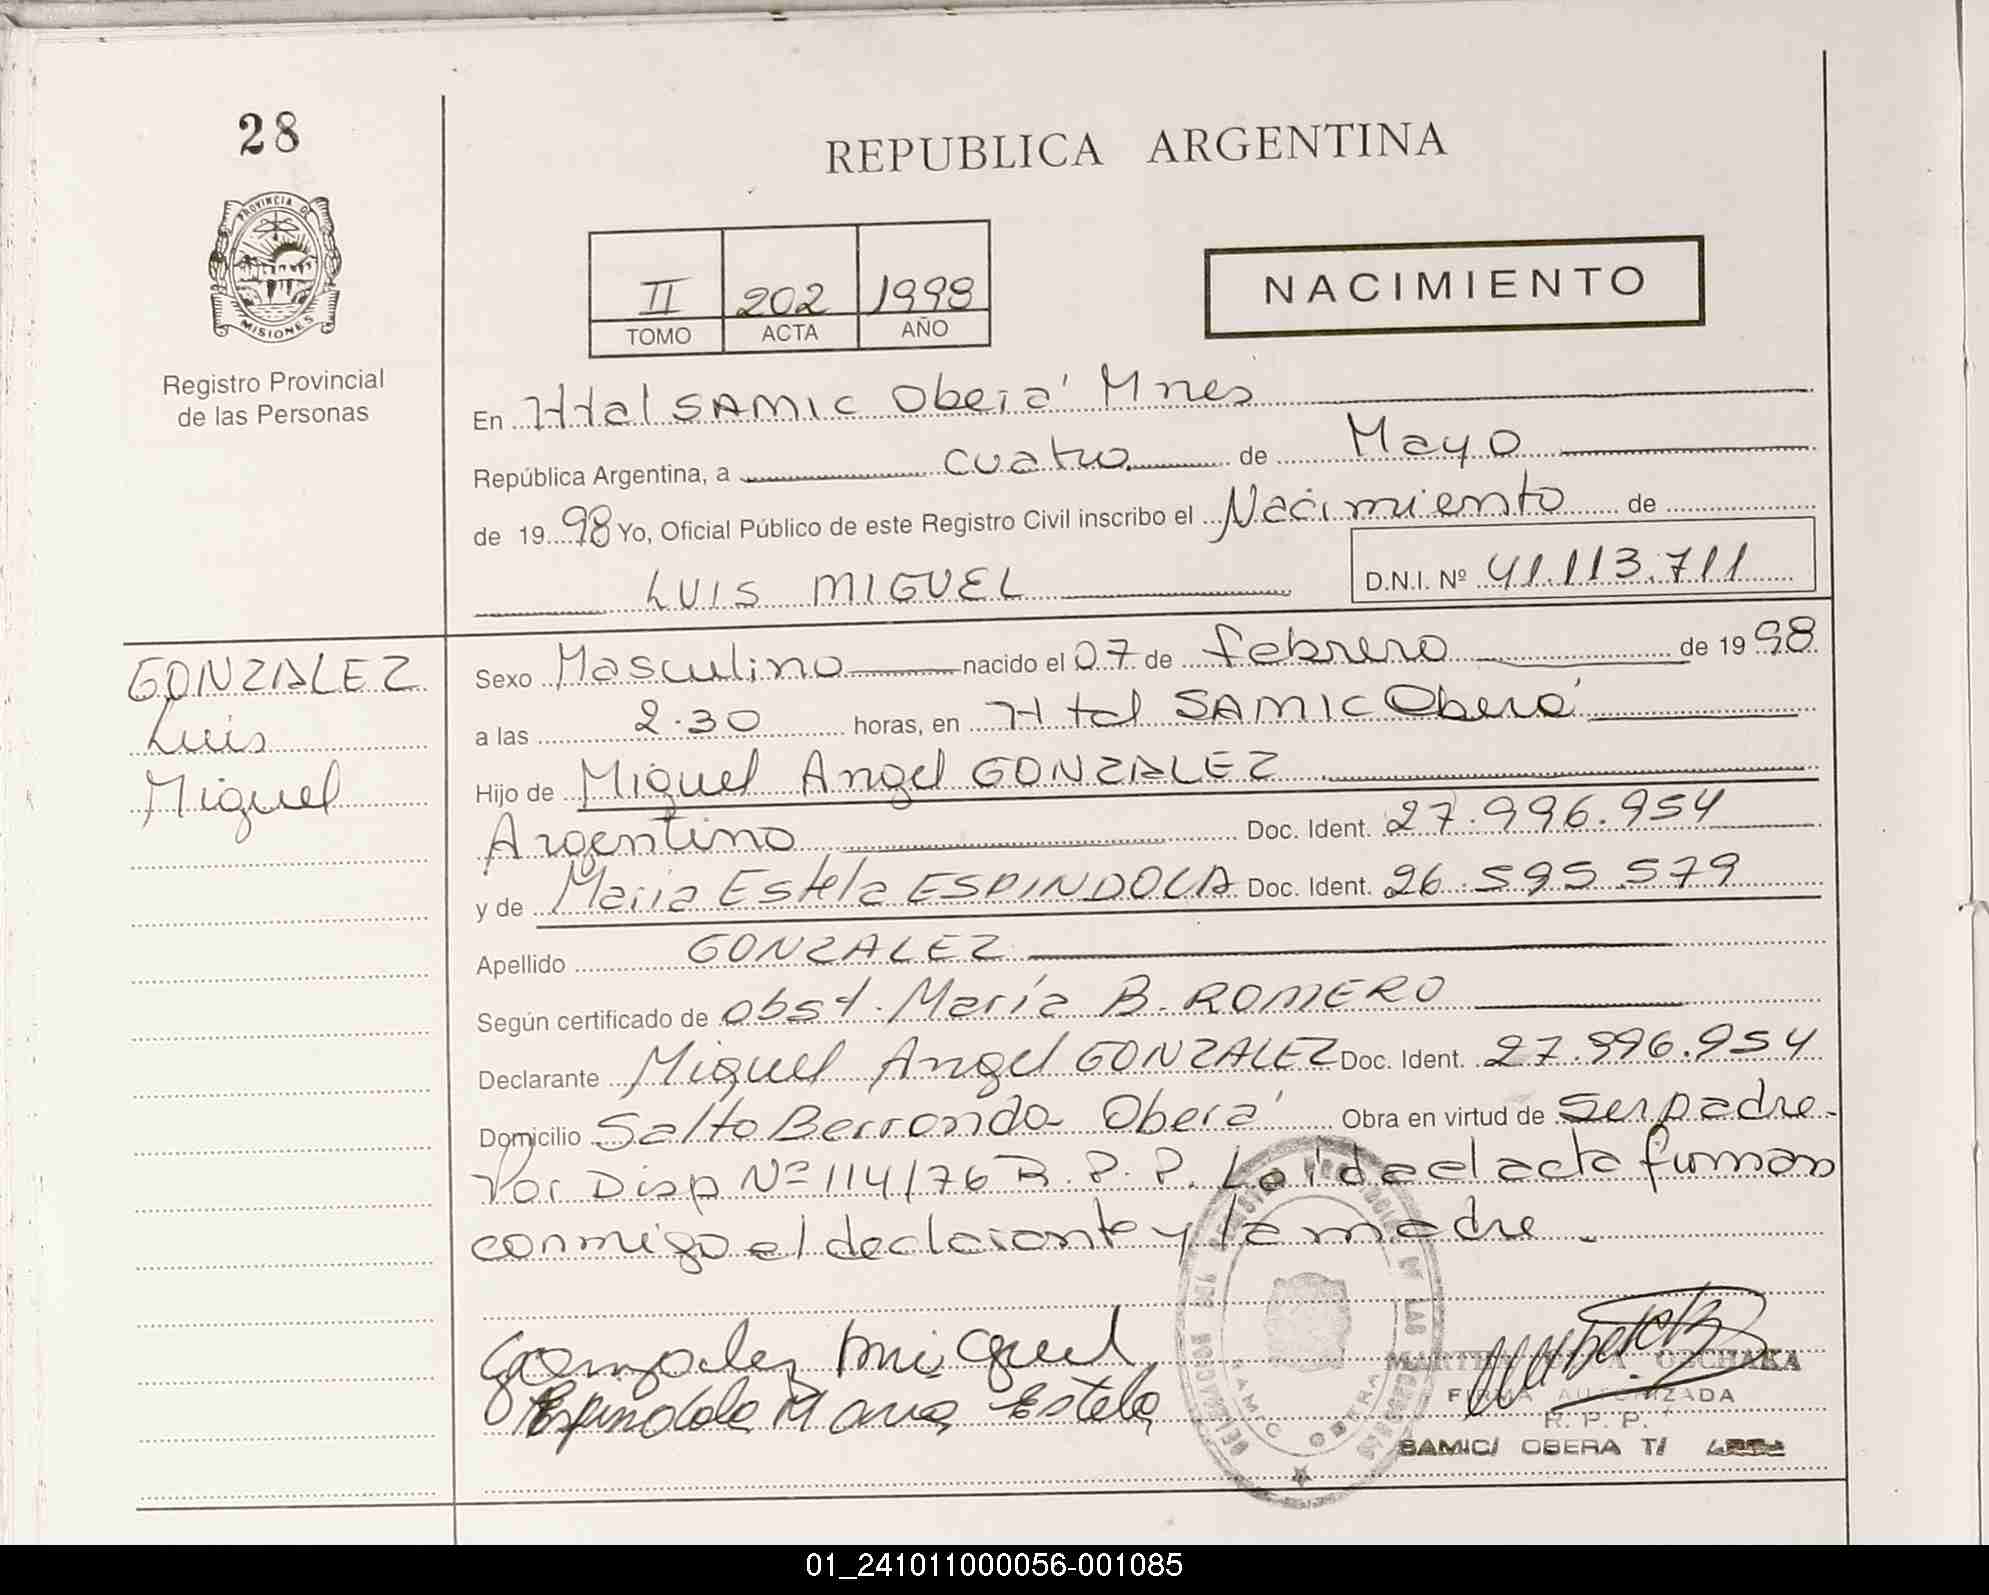 28
REPUBLICA ARGENTINA
PROVINCIA DE
MISIONES
II 202 1998
TOMO ACTA AÑO
NACIMIENTO
Registro Provincial
de las Personas
En Htal SAMIC Oberá Mnes
República Argentina, a cuatro de Mayo
de 1998 Yo, Oficial Público de este Registro Civil inscribo el Nacimiento de
LUIS MIGUEL D.N.I. Nº 41.113.711
GONZALEZ
Luis
Miguel
Sexo Masculino nacido el 07 de febrero de 1998
a las 2.30 horas, en Htal SAMIC Oberá
Hijo de Miguel Angel GONZALEZ
Argentino Doc. Ident. 27.996.954
y de Maria Estela ESPINDOLA Doc. Ident. 26.595.579
Apellido GONZALEZ
Según certificado de obst. María B. ROMERO
Declarante Miguel Angel GONZALEZ Doc. Ident. 27.996.954
Domicilio Salto Berrondo Oberá Obra en virtud de ser padre.
Por Disp Nº 114/76 R.P.P. Leída el acta firman
conmigo el declarante y la madre.
Gonzalez Miguel
Espindola Maria Estela
SAMIC OBERA
FIRMA AUTORIZADA
R. P. P.
SAMIC/ OBERA T/
01_241011000056-001085